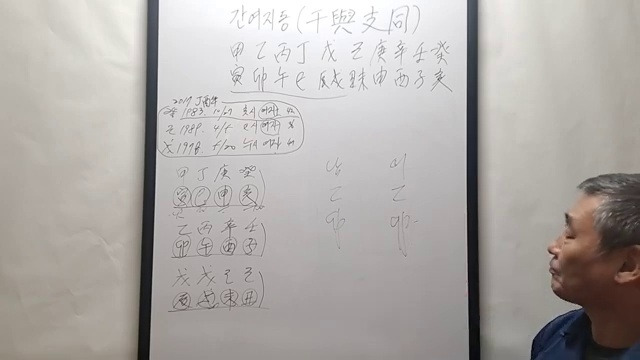 간여지동(干與支同)
甲乙丙丁戊己庚辛壬癸
寅卯午巳辰戌丑未申酉子亥
2017 丁酉年
1983. 10/27 여자
1989. 4/5 여자
戊 1978. 5/20 여자
甲丁庚癸
寅巳申亥
乙丙辛壬
卯午酉子
戊戊己己
辰戌未丑
남 여
乙 乙
卯 卯